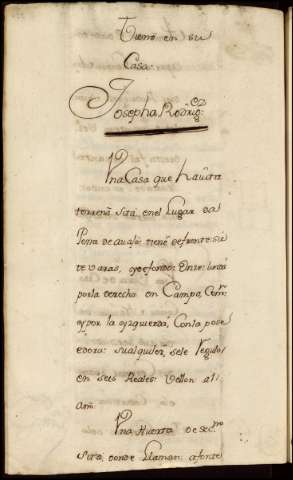 Tiene en su
Casa
Josepha Rodrig.ez
Vna Casa que havita
terrena sita, en el Lugar da
Pena de auajo: tiene de frente sie
te varas, ofondo: Linda
por la derecha en Campo,
y por la yzquierda, Con la pose
edora: su alquiler, se le regulo
en seis Reales Vellon al
año
Vna Huerta de sec.no
sita, donde Llaman: afonte